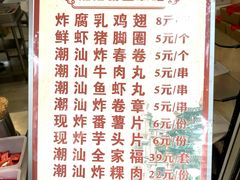 炸腐乳鸡翅 8元/个
鲜虾猪脚圈 5元/个
潮汕炸春卷 5元/个
潮汕牛肉丸 5元/串
潮汕鱼虾丸 5元/串
潮汕炸卷章 5元/串
现炸番薯片 6元/份
现炸芋头片 6元/份
潮汕全家福 39元/套
潮汕炸粿肉 22元/份